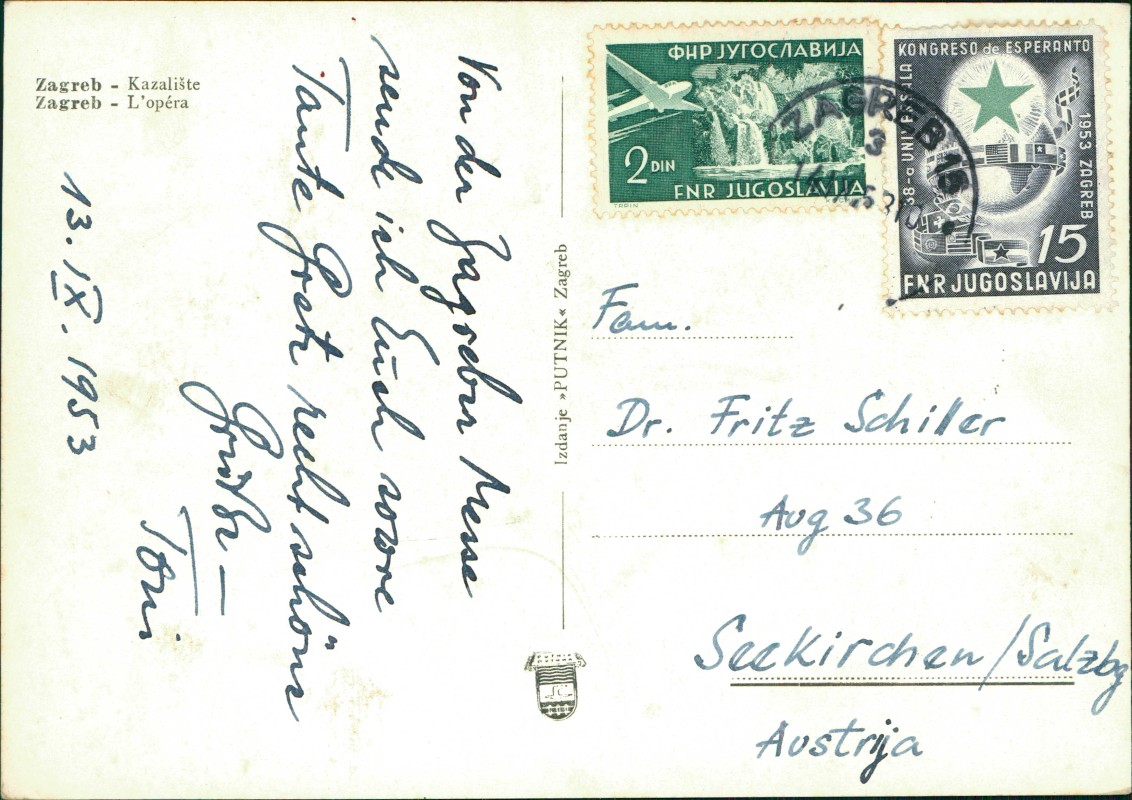 Zagreb - Kazalište
Zagreb - L'opéra
13. IX. 1953
Von der Zagreber Messe
sende ich Euch sowie
Tante Grete recht schöne
Grüße –
Toni
Izdanje »PUTNIK« Zagreb
ФНР ЈУГОСЛАВИЈА
2 DIN
FNR JUGOSLAVIJA
38-a UNIVERSALA
KONGRESO de ESPERANTO
1953 ZAGREB
15
FNR JUGOSLAVIJA
ZAGREB
3
Fam.
Dr. Fritz Schiller
Aug 36
Seekirchen/Salzbg
Austrija